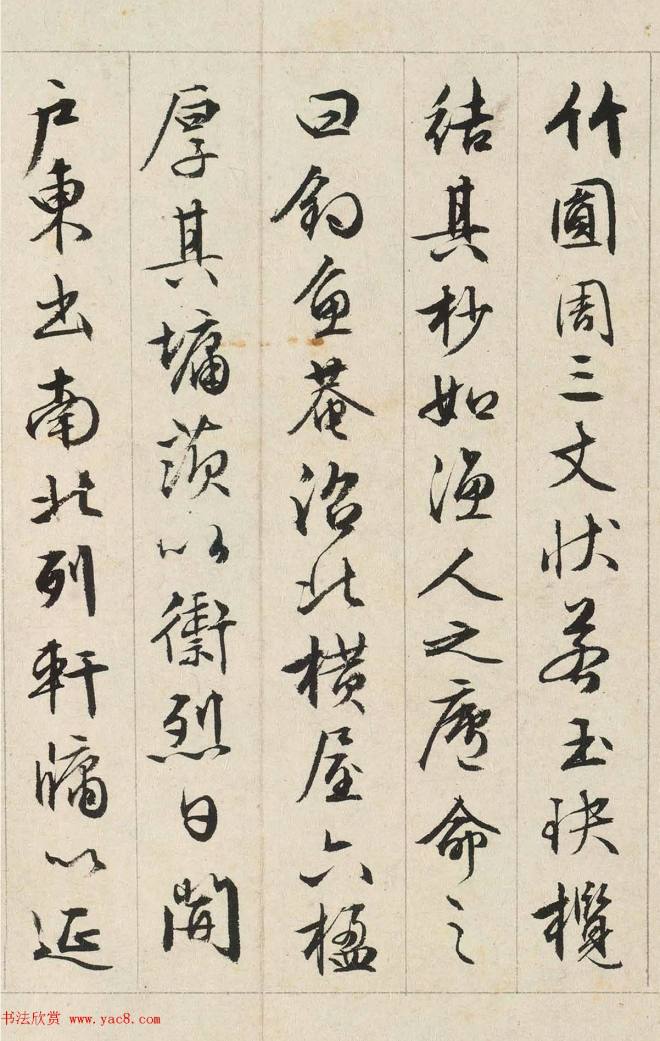 竹圓周三丈狀若玉玦欖
結其杪如漁人之廬命之
曰釣魚菴沼北橫屋六楹
厚其墉茨以衛烈日開
户東出南北列軒牖以延
书法欣赏 www.yac8.com